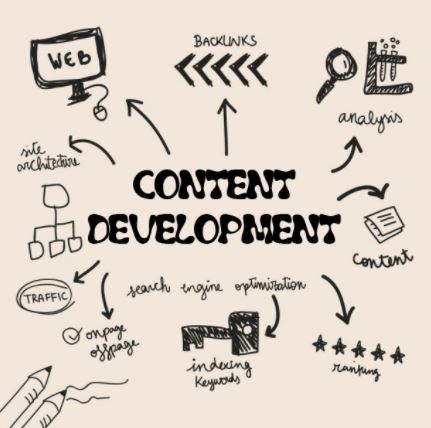 WEB
BACKLINKS
analysis
site
architecture
CONTENT
DEVELOPMENT
content
search engine optimization
TRAFFIC
onpage
offpage
indexing
keywords
ranking